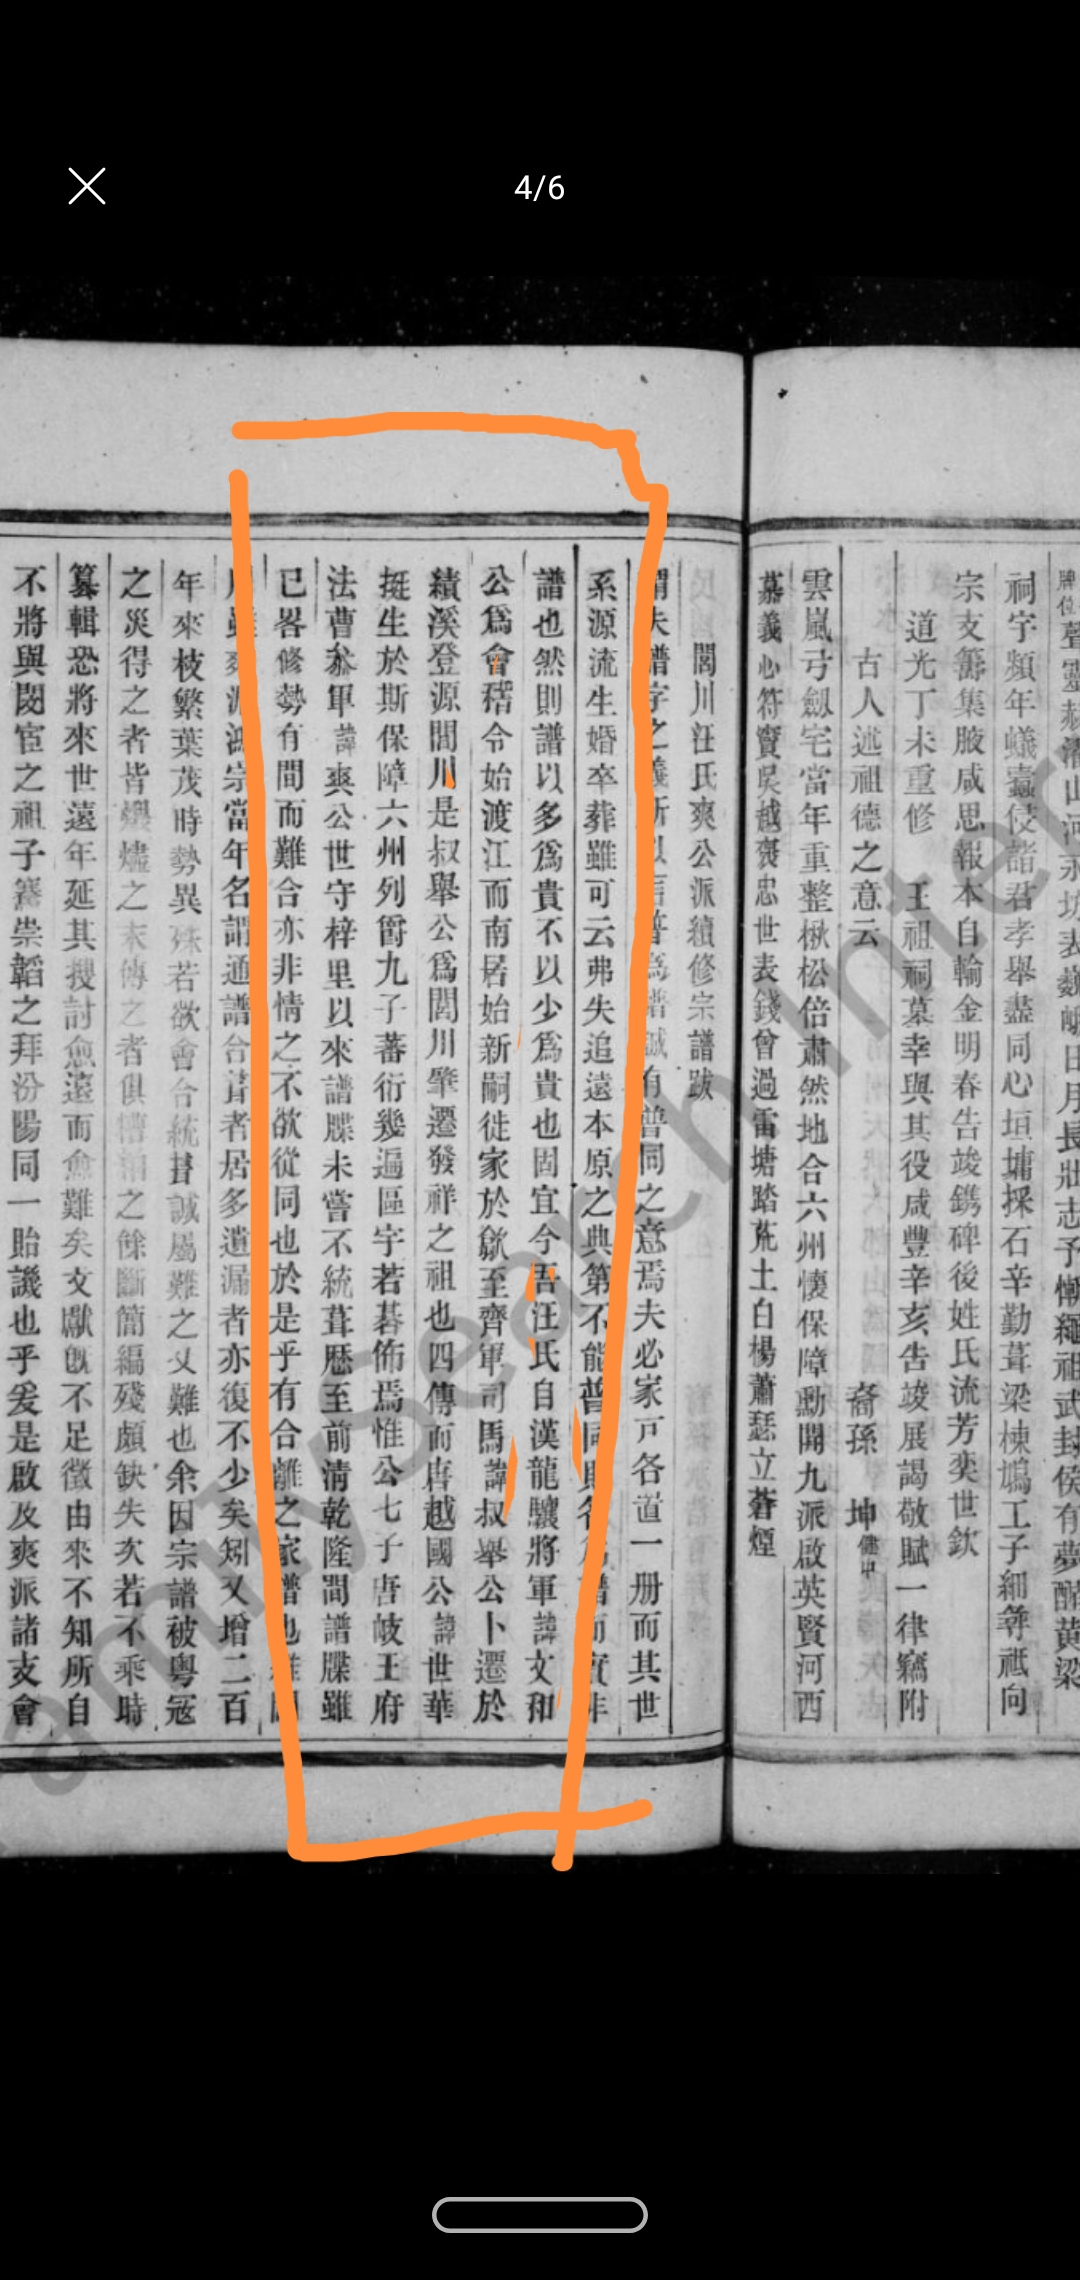 4/6
牌位聲靈赫濯山河永
祠宇頻年蟻蠹侵諸君孝舉盡同心垣墉採石辛勤葺梁棟鳩工子細尋祗向
宗支籌集腋咸思報本自輸金明春告竣鐫碑後姓氏流芳奕世欽
道光丁未重修 王祖祠墓幸與其役咸豐辛亥告竣展謁敬賦一律竊附
古人述祖德之意云 裔孫 坤
雲嵐弓劍宅當年重整楸松倍肅然地合六州懷保障勳開九派啟英賢河西
慕義心符竇吳越褒忠世表錢曾過雷塘踏荒土白楊蕭瑟立蒼煙
閬川汪氏爽公派續修宗譜跋
謂夫譜字之義 有普同之意焉夫必家戸各道一册而其世
系源流生婚卒葬雖可云弗失追遠本原之典第不能普同則 譜而實非
譜也然則譜以多爲貴不以少爲貴也固宜今吾汪氏自漢龍驤將軍諱文和
公爲會稽令始渡江而南居始新嗣徙家於歙至齊軍司馬諱叔舉公卜遷於
績溪登源閬川是叔舉公爲閬川肇遷發祥之祖也四傳而唐越國公諱世華
挺生於斯保障六州列爵九子蕃衍幾遍區宇若碁佈焉惟公七子唐岐王府
法曹叅軍諱爽公世守梓里以來譜牒未嘗不統葺歷至前清乾隆間譜牒雖
已畧修勢有間而難合亦非情之不欲從同也於是乎有合離之家譜也
宗當年名謂通譜合 者居多遺漏者亦復不少矣矧又增二百
年來枝繁葉茂時勢異殊若欲會合統 誠屬難之又難也余因宗譜被粤寇
之災得之者皆煨燼之末傳之者俱 之餘斷簡編殘頗缺失次若不乘時
纂輯恐將來世遠年延其搜討愈遠而愈難矣文獻既不足徵由來不知所自
不將與閔宦之祖子騫崇韜之拜汾陽同一貽譏也乎爰是啟及爽派諸支會